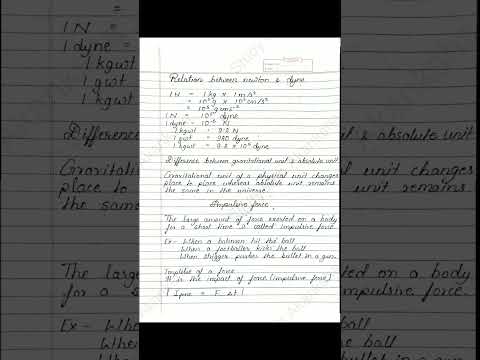 Relation between newton & dyne
1 N = 1 kg x 1 m/s²
= 10³ g x 10² cm/s²
= 10⁵ g cms⁻²
1 N = 10⁵ dyne
1 dyne = 10⁻⁵ N
1 kgwt = 9.8 N
1 gwt = 980 dyne
1 kgwt = 9.8 x 10⁵ dyne
Difference between gravitational unit & absolute unit
Gravitational unit of a physical unit changes
place to place whereas absolute unit remains
the same in the universe.
Impulsive force
The large amount of force exerted on a body
for a short time is called impulsive force.
Ex- When a batsman hit the ball
When a footballer kicks the ball
When trigger pushes the bullet in a gun.
Impulse of a force
It is the impact of force (impulsive force)
=
1 N =
1 dyne =
1 kgwt
1 gwt
1 kgwt
Differenc
Gravita
place t
the sam
The larg
for a s
Ex- When
When
& absolute
unit changes
it remains
d on a body
ve force.